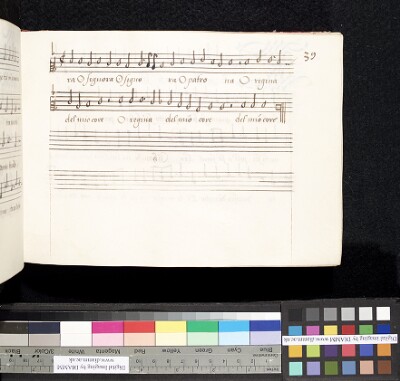 39
ra O signora O signo ra O patro na O regina
del mio core O regina del mio core del mio core
Blue Cyan Green Yellow Red Magenta White 3/Color Black
www.diamm.ac.uk
Digital Imaging by DIAMM
Digital Imaging by DIAMM www.diamm.ac.uk